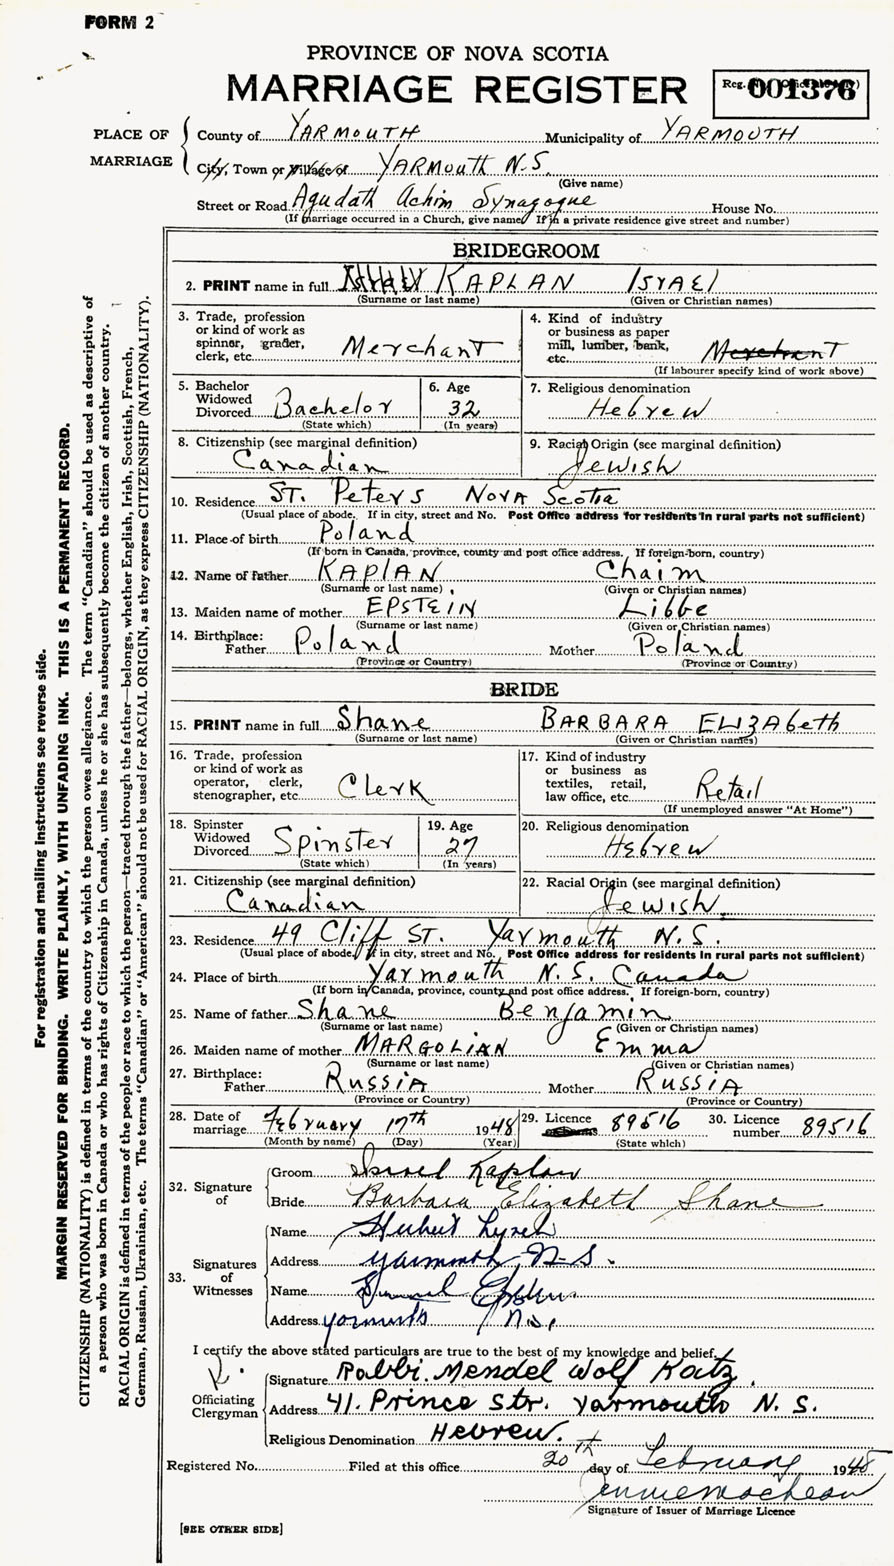 FORM 2
PROVINCE OF NOVA SCOTIA
MARRIAGE REGISTER
Reg. No. 001376
PLACE OF MARRIAGE
County of YARMOUTH Municipality of YARMOUTH
City, Town or Village of YARMOUTH N.S.
(Give name)
Street or Road Agudath Achim Synagogue House No.
(If marriage occurred in a Church, give name. If in a private residence give street and number)
BRIDEGROOM
2. PRINT name in full KAPLAN ISRAEL
(Surname or last name) (Given or Christian names)
3. Trade, profession or kind of work as spinner, grader, clerk, etc. Merchant
4. Kind of industry or business as paper mill, lumber, bank, etc. Merchant
(If labourer specify kind of work above)
5. Bachelor Widowed Divorced Bachelor
(State which)
6. Age 32
(In years)
7. Religious denomination Hebrew
8. Citizenship (see marginal definition) Canadian
9. Racial Origin (see marginal definition) Jewish
10. Residence ST. Peters Nova Scotia
(Usual place of abode. If in city, street and No. Post Office address for residents in rural parts not sufficient)
11. Place of birth Poland
(If born in Canada, province, county and post office address. If foreign-born, country)
12. Name of father KAPLAN Chaim
(Surname or last name) (Given or Christian names)
13. Maiden name of mother EPSTEIN Libbe
(Surname or last name) (Given or Christian names)
14. Birthplace: Father Poland Mother Poland
(Province or Country) (Province or Country)
BRIDE
15. PRINT name in full Shane BARBARA ELIZAbeth
(Surname or last name) (Given or Christian names)
16. Trade, profession or kind of work as operator, clerk, stenographer, etc. Clerk
17. Kind of industry or business as textiles, retail, law office, etc. Retail
(If unemployed answer "At Home")
18. Spinster Widowed Divorced Spinster
(State which)
19. Age 27
(In years)
20. Religious denomination Hebrew
21. Citizenship (see marginal definition) Canadian
22. Racial Origin (see marginal definition) Jewish
23. Residence 49 Cliff ST. Yarmouth N.S.
(Usual place of abode. If in city, street and No. Post Office address for residents in rural parts not sufficient)
24. Place of birth Yarmouth N.S. Canada
(If born in Canada, province, county and post office address. If foreign-born, country)
25. Name of father Shane Benjamin
(Surname or last name) (Given or Christian names)
26. Maiden name of mother MARGOLIAN Emma
(Surname or last name) (Given or Christian names)
27. Birthplace: Father RUSSIA Mother RUSSIA
(Province or Country) (Province or Country)
28. Date of marriage February 17th 1948
(Month by name) (Day) (Year)
29. Licence 89516
(State which)
30. Licence number 89516
32. Signature of
Groom Israel Kaplan
Bride Barbara Elizabeth Shane
33. Signatures of Witnesses
Name
Address Yarmouth, N-S.
Name
Address Yarmouth N.S.
I certify the above stated particulars are true to the best of my knowledge and belief.
Officiating Clergyman
Signature Rabbi. Mendel Wolf Katz.
Address 41. Prince Str. Yarmouth N. S.
Religious Denomination Hebrew.
Registered No. Filed at this office 20th day of February 1948
Signature of Issuer of Marriage Licence
[SEE OTHER SIDE]
For registration and mailing instructions see reverse side.
MARGIN RESERVED FOR BINDING. WRITE PLAINLY, WITH UNFADING INK. THIS IS A PERMANENT RECORD.
CITIZENSHIP (NATIONALITY) is defined in terms of the country to which the person owes allegiance. The term "Canadian" should be used as descriptive of
a person who was born in Canada or who has rights of Citizenship in Canada, unless he or she has subsequently become the citizen of another country.
RACIAL ORIGIN is defined in terms of the people or race to which the person—traced through the father—belongs, whether English, Irish, Scottish, French,
German, Russian, Ukrainian, etc. The terms "Canadian" or "American" should not be used for RACIAL ORIGIN, as they express CITIZENSHIP (NATIONALITY).